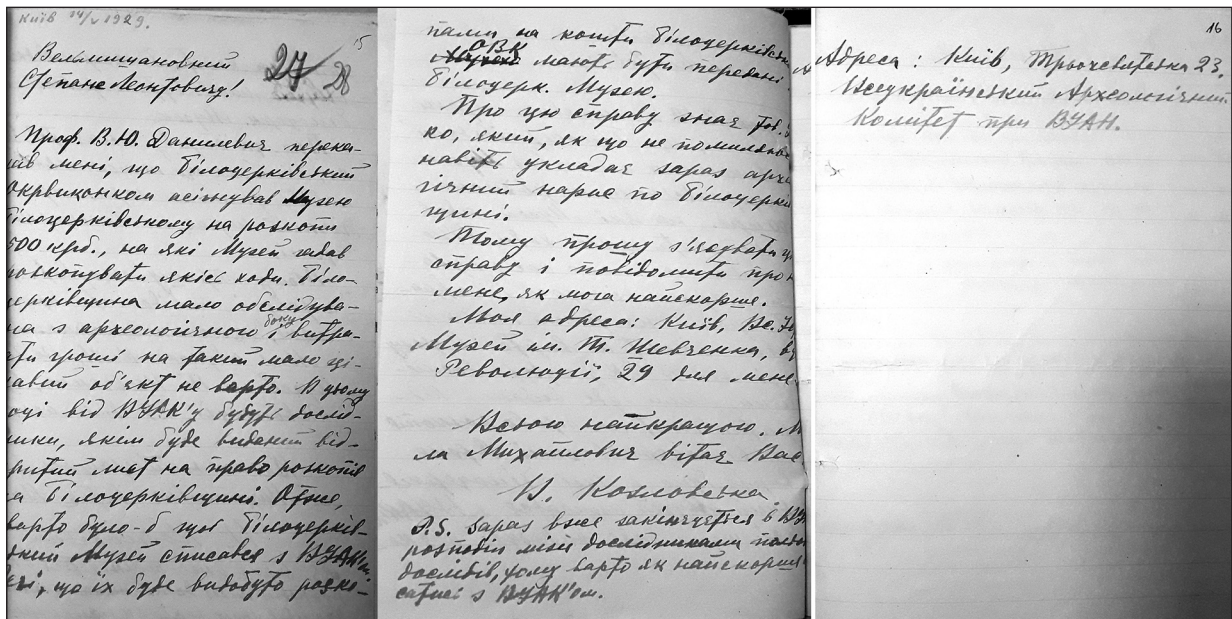 Київ 14/V 1929.
15
27 28
Вельмишановний
Степане Леонтовичу!
Проф. В.Ю. Данилевич перека-
ів мені, що Білоцерківський
Окрвиконком асігнував Музею
Білоцерківському на розкопи
500 крб., на які Музей гадав
розкопувати якісь ходи. Біло-
церківщина мало обслідува-
на з археологічного боку і витра-
ати гроші на такий мало ці-
кавий об'єкт не варто. В цьому
оці від ВУАК'у будуть дослід-
ники, яким буде виданий від-
ритий лист на право розкопів
на Білоцерківщині. Отже,
варто було-б щоб Білоцерків-
ський Музей списався з ВУАК'ом
речі, що їх буде видобуто розко-
пами на кошти Білоцерківськ
ОВК мають бути передані
Білоцерк. Музею.
Про цю справу знає тов.
ко, який, як що не помиляюсь
навіть укладає зараз архе
гічний нарис по Білоцерків
щині.
Тому прошу з'ясувати цю
справу і повідомити про н
мене, як мога найскорше.
Моя адреса: Київ, Вс. Іс
Музей ім. Т. Шевченка, ву
Революції, 29 для мене
Всього найкращого. М
ла Михайлович вітає Вас
В. Козловська
P.S. Зараз вже закінчується в ВУА
розподіл між дослідниками
дослідів, чому варто як найскорше
сатись з ВУАК'ом.
16
Адреса: Київ, Трьохсвятська 23,
Всеукраїнський Археологічний
Комітет при ВУАН.